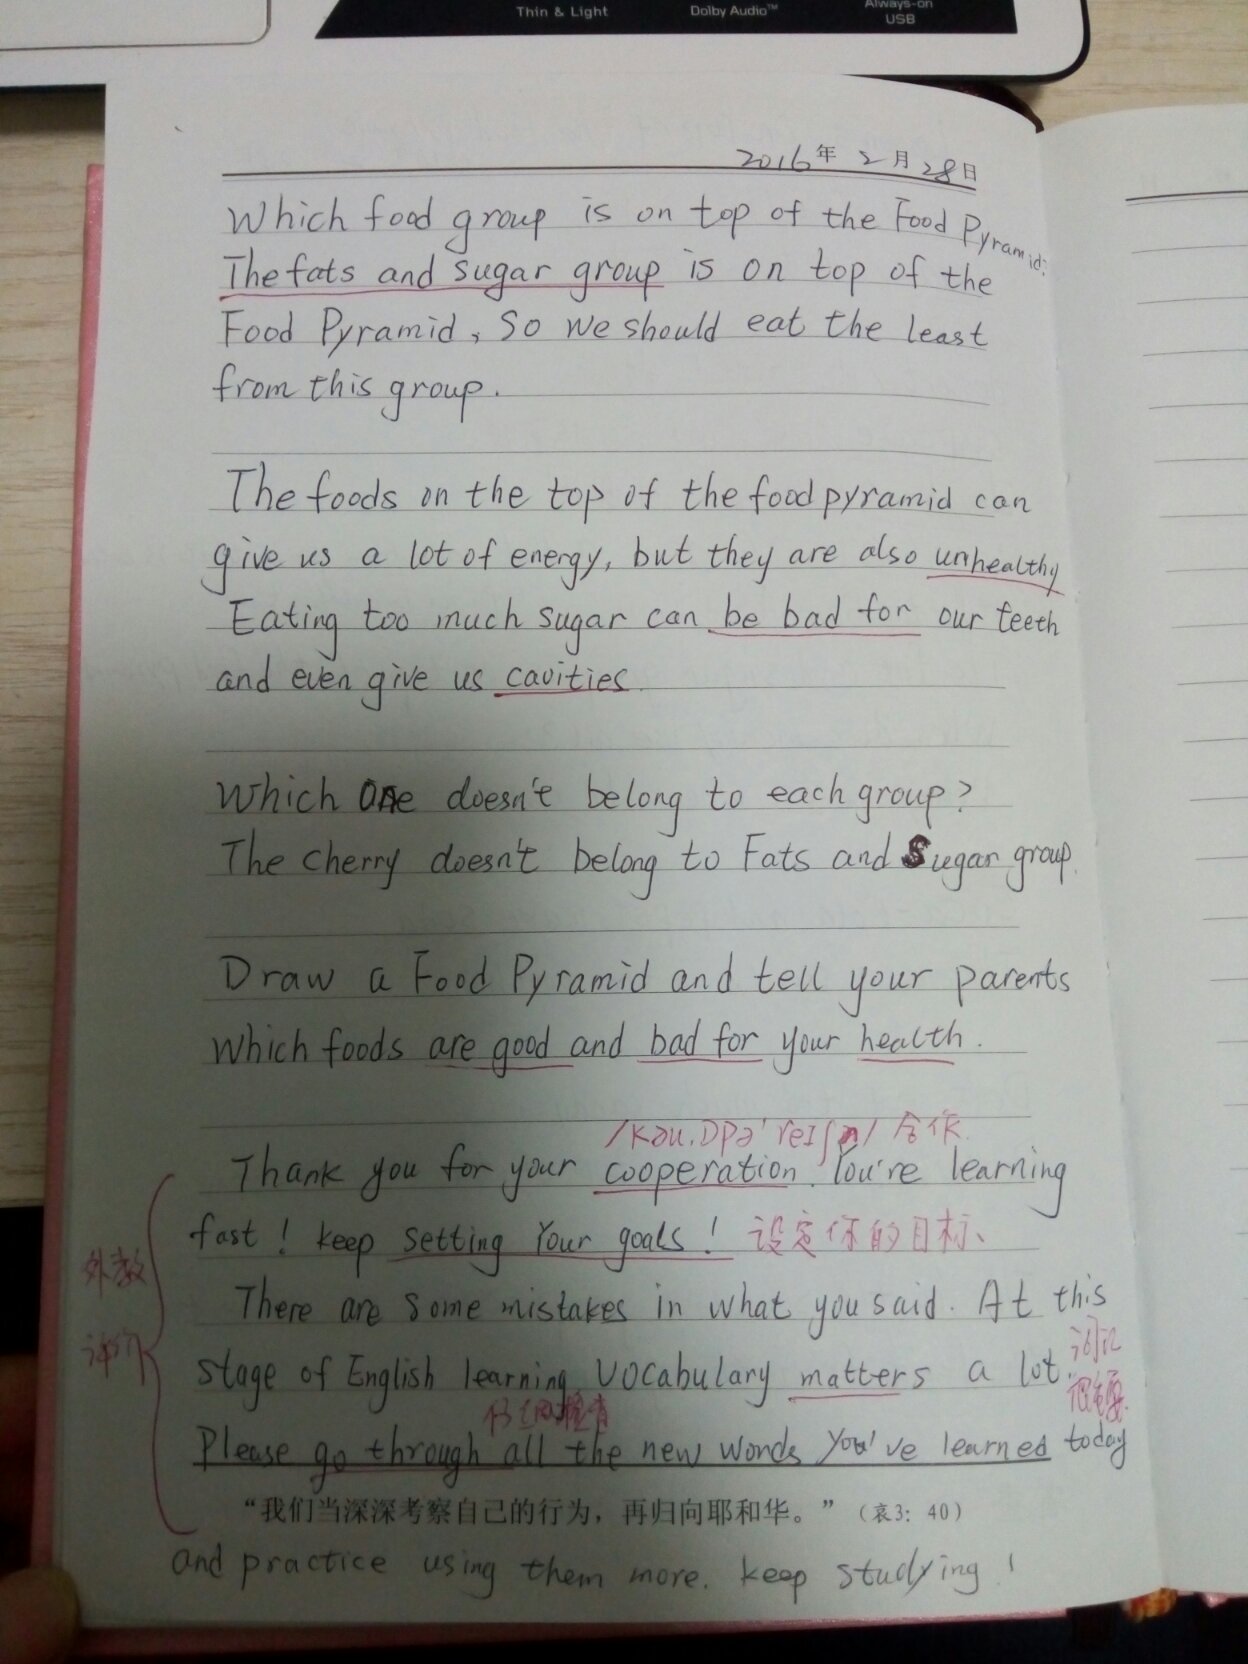 Thin & Light
Dolby Audio™
Always-on
USB
2016年 2月28日
Which food group is on top of the Food Pyramid?
The fats and sugar group is on top of the
Food Pyramid, So we should eat the least
from this group.
The foods on the top of the food pyramid can
give us a lot of energy, but they are also unhealthy
Eating too much sugar can be bad for our teeth
and even give us cavities
Which one doesn't belong to each group?
The cherry doesn't belong to Fats and Sugar group.
Draw a Food Pyramid and tell your parents
which foods are good and bad for your health.
/kəu.ɒpə'reɪʃn/ 合作
Thank you for your cooperation. You're learning
fast! keep setting Your goals! 设定你的目标、
外教
评价
There are some mistakes in what you said. At this
stage of English learning vocabulary matters a lot.
词汇
很重要.
仔细检查
Please go through all the new words you've learned today
“我们当深深考察自己的行为，再归向耶和华。”（哀3：40）
and practice using them more. keep studying!